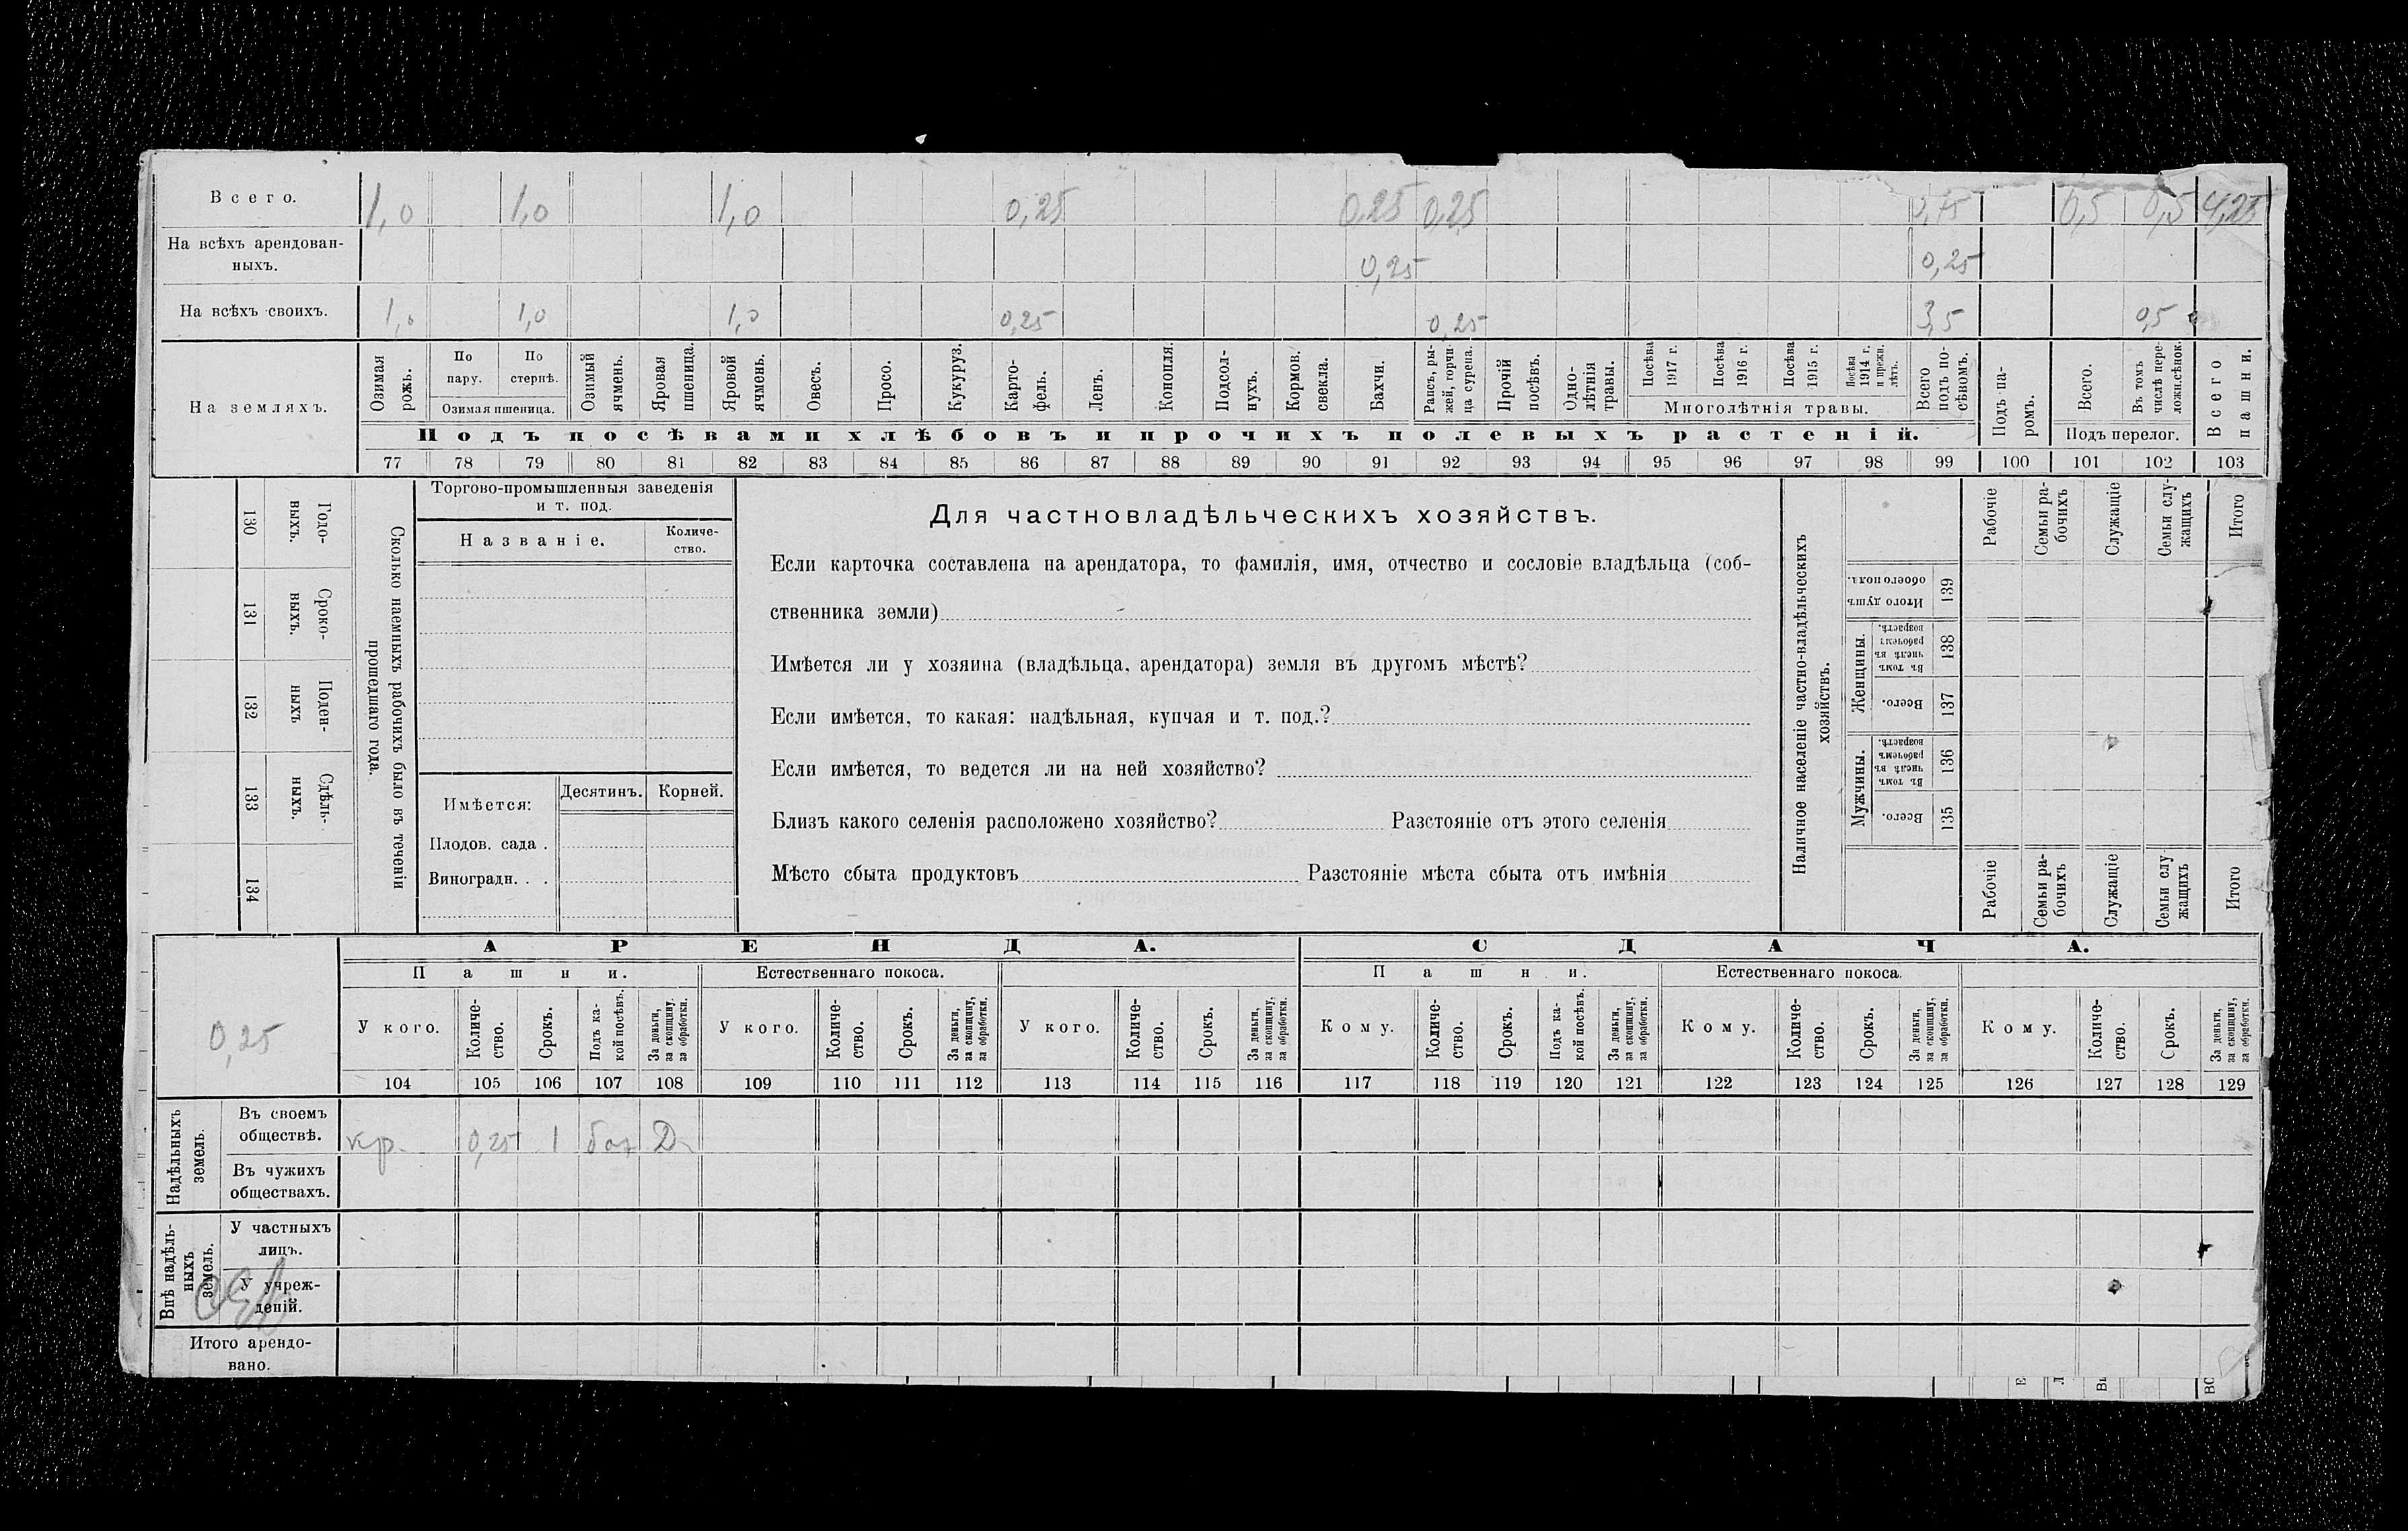 Всего. 1,0 1,0 1,0 0,25 0,25 0,25 0,5 0,5 4,25
На всѣхъ арендован-
ныхъ. 0,25 0,25
На всѣхъ своихъ. 1,0 1,0 1,0 0,25 0,25 3,5 0,5
На земляхъ.
Озимая рожь.
По пару.
По стернѣ.
Озимая пшеница.
Озимый ячмень.
Яровая пшеница.
Яровой ячмень.
Овесъ.
Просо.
Кукуруз.
Карто-
фель.
Ленъ.
Конопля.
Подсол-
нухъ.
Кормов.
свекла.
Бахчи.
Рапсъ, ры-
жей, горчи
ца сурепа.
Прочій
посѣвъ.
Одно-
лѣтнія
травы.
Посѣва
1917 г.
Посѣва
1916 г.
Посѣва
1915 г.
Посѣва
1914 г.
и прежн.
лѣтъ.
Многолѣтнія травы.
Всего
подъ по-
сѣвомъ.
Подъ па-
ромъ.
Всего.
Въ томъ
числѣ пере-
ложн.сѣнок.
Подъ перелог.
Всего
пашни.
Подъ посѣвами хлѣбовъ и прочихъ полевыхъ растеній.
77 78 79 80 81 82 83 84 85 86 87 88 89 90 91 92 93 94 95 96 97 98 99 100 101 102 103
130
Годо-
выхъ.
131
Сроко-
выхъ.
132
Поден-
ныхъ
133
Сдѣль-
ныхъ.
134
Сколько наемныхъ рабочихъ было въ теченіи
прошедшаго года.
Торгово-промышленныя заведенія
и т. под.
Названіе.
Количе-
ство.
Имѣется:
Десятинъ.
Корней.
Плодов. сада .
Виноградн. . .
Для частновладѣльческихъ хозяйствъ.
Если карточка составлена на арендатора, то фамилія, имя, отчество и сословіе владѣльца (соб-
ственника земли)
Имѣется ли у хозяина (владѣльца, арендатора) земля въ другомъ мѣстѣ?
Если имѣется, то какая: надѣльная, купчая и т. под.?
Если имѣется, то ведется ли на ней хозяйство?
Близъ какого селенія расположено хозяйство? Разстояніе отъ этого селенія
Мѣсто сбыта продуктовъ Разстояніе мѣста сбыта отъ имѣнія
Наличное населеніе частно-владѣльческихъ
хозяйствъ.
Рабочіе
Семьи ра-
бочихъ
Служащіе
Семьи слу-
жащихъ
Итого
Итого душъ
обоего пола.
139
Женщины.
Въ томъ
числѣ въ
рабочемъ
возрастѣ.
138
Всего.
137
Мужчины.
Въ томъ
числѣ въ
рабочемъ
возрастѣ.
136
Всего.
135
Рабочіе
Семьи ра-
бочихъ
Служащіе
Семьи слу
жащихъ
Итого
0,25
АРЕНДА.
СДАЧА.
Пашни.
Естественнаго покоса.
Пашни.
Естественнаго покоса.
У кого.
Количе-
ство.
Срокъ.
Подъ ка-
кой посѣвъ.
За деньги,
за скопщину,
за обработки.
У кого.
Количе-
ство.
Срокъ.
За деньги,
за скопщину,
за обработки.
У кого.
Количе-
ство.
Срокъ.
За деньги,
за скопщину,
за обработки.
Кому.
Количе-
ство.
Срокъ.
Подъ ка-
кой посѣвъ.
За деньги,
за скопщину,
за обработки.
Кому.
Количе-
ство.
Срокъ.
За деньги,
за скопщину,
за обработки.
Кому.
Количе-
ство.
Срокъ.
За деньги,
за скопщину,
за обработки.
104 105 106 107 108 109 110 111 112 113 114 115 116 117 118 119 120 121 122 123 124 125 126 127 128 129
Надѣльныхъ
земель.
Въ своемъ
обществѣ.
кр. 0,25 1 бах Д
Въ чужихъ
обществахъ.
Внѣ надѣль-
ныхъ
земель.
У частныхъ
лицъ.
У учреж-
деній.
Итого арендо-
вано.